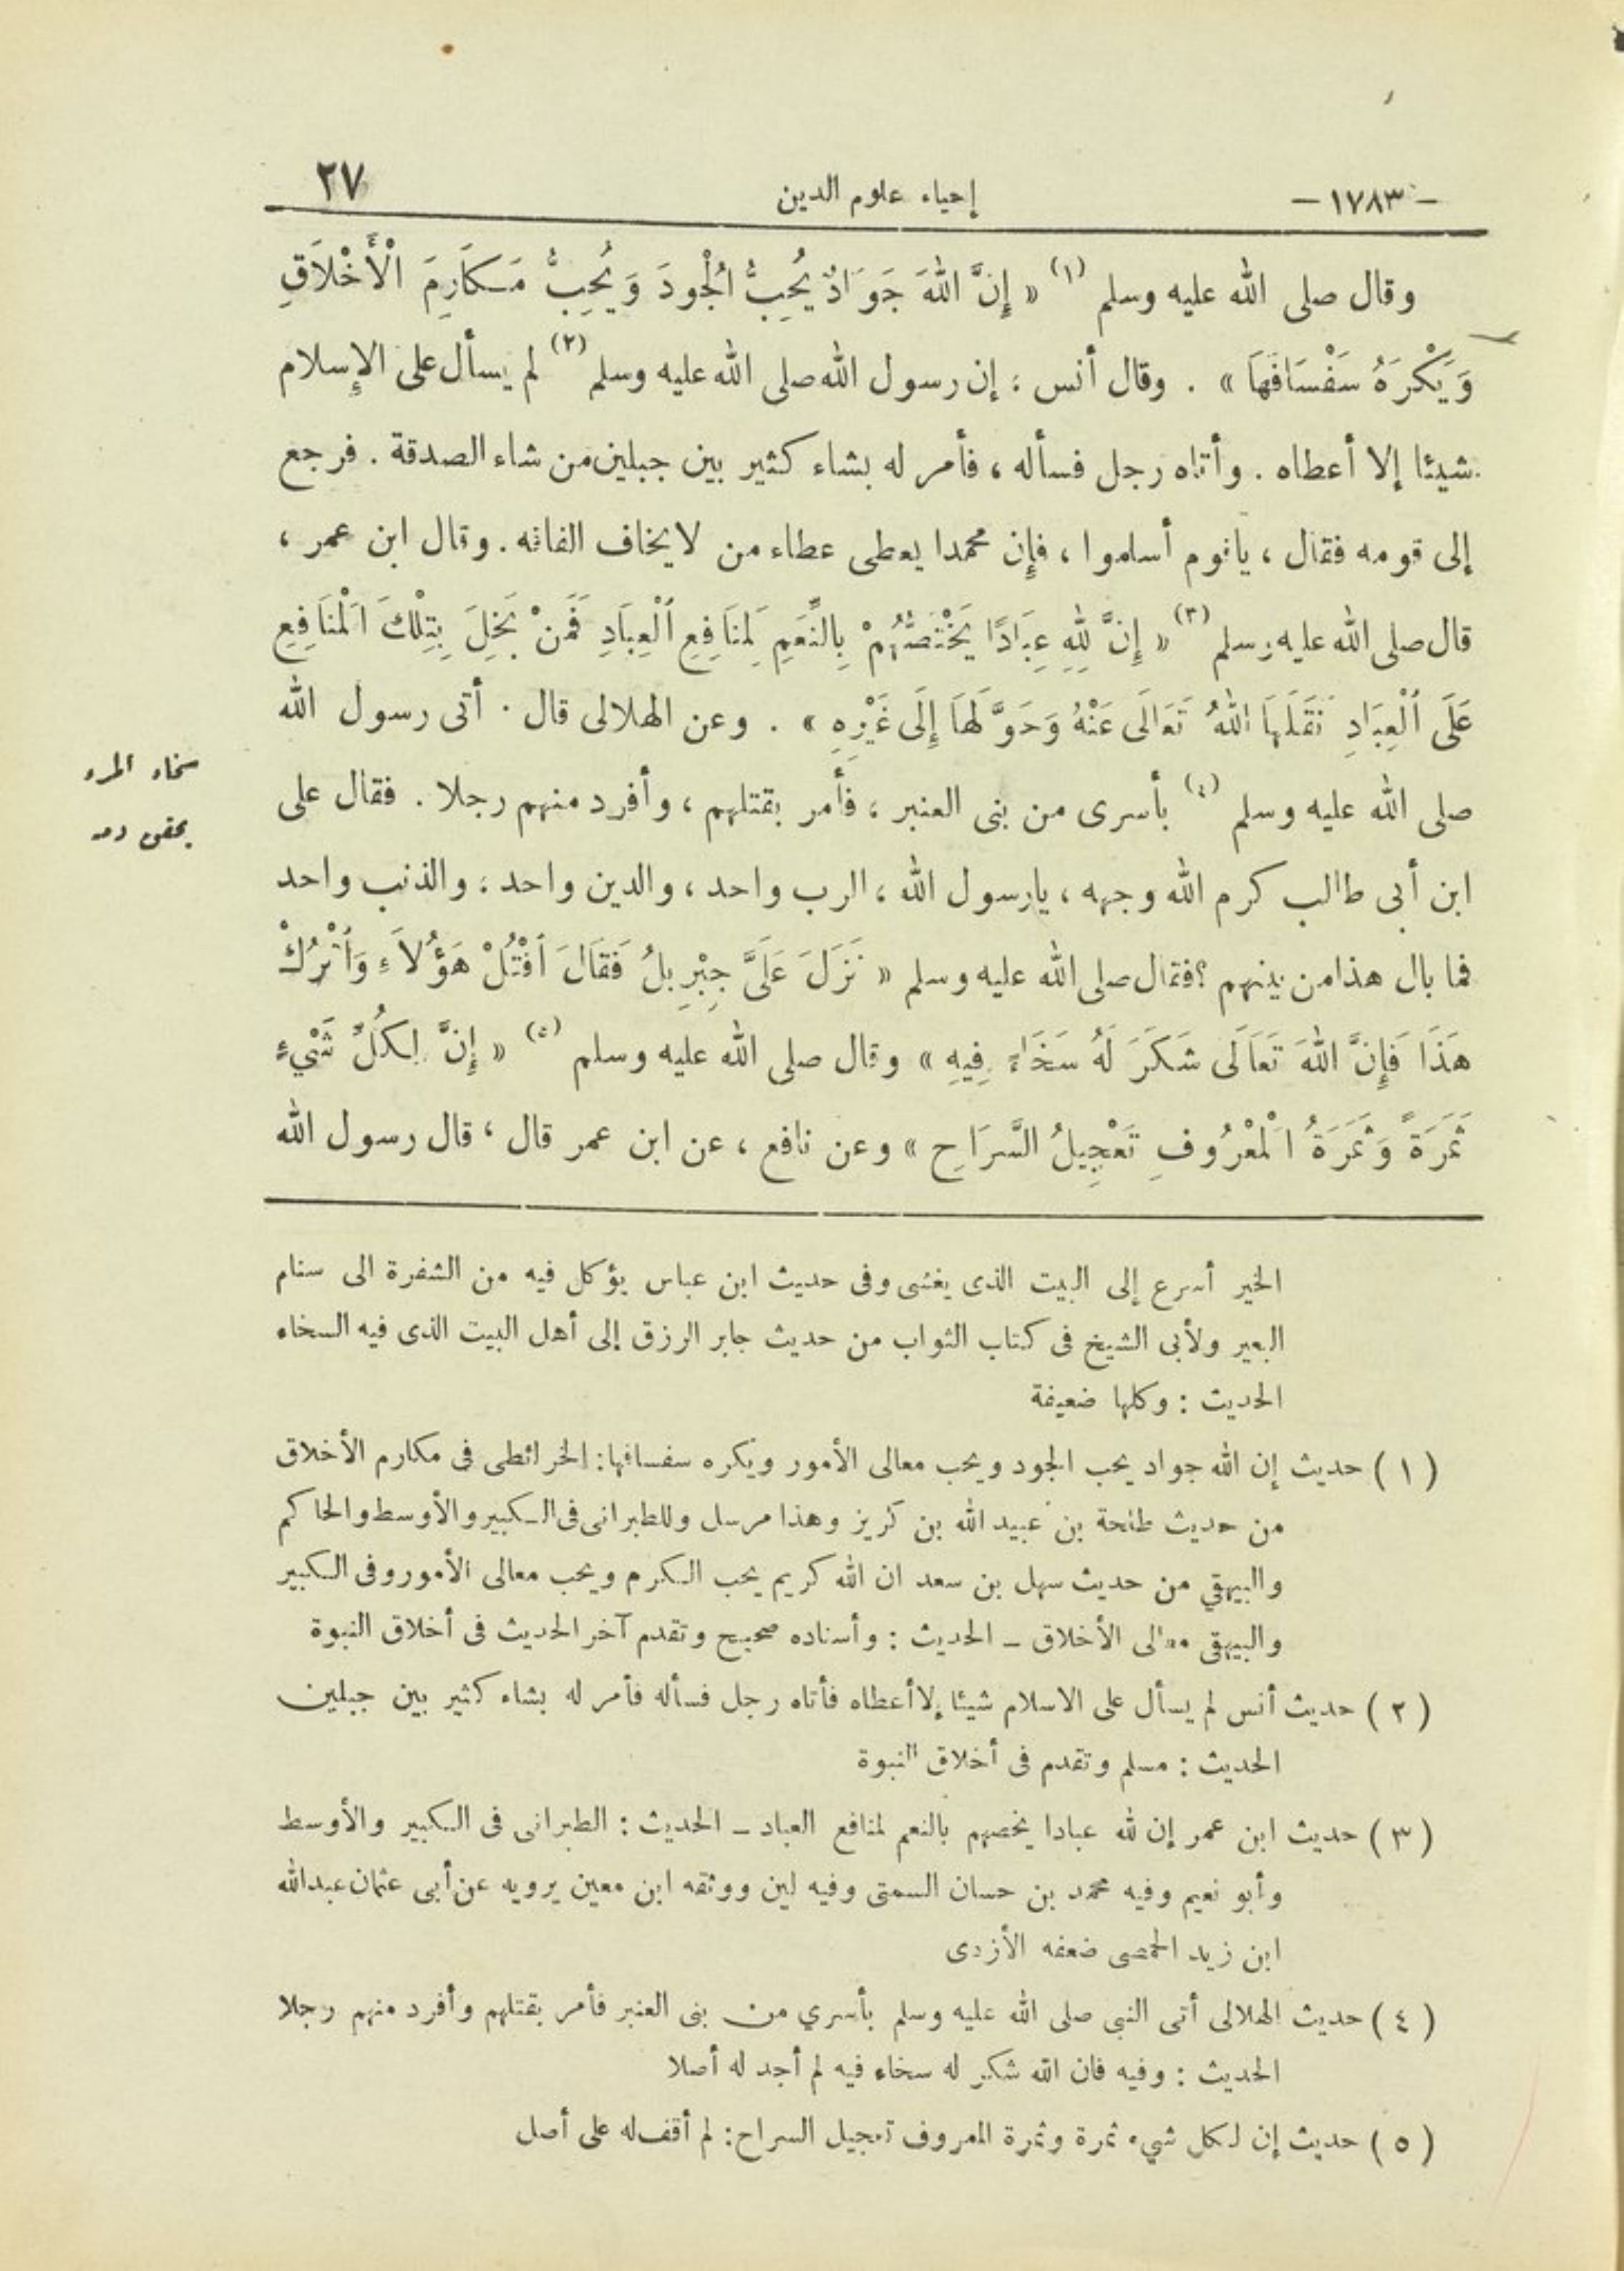 - ١٧٨٣ - إحياء علوم الدين ٢٧
وقال صلى الله عليه وسلم (١) « إِنَّ اللهَ جَوَادٌ يُحِبُّ الْجُودَ وَيُحِبُّ مَكَارِمَ الْأَخْلَاقِ
وَيَكْرَهُ سَفْسَافَهَا » . وقال أنس : إن رسول الله صلى الله عليه وسلم (٢) لم يسأل على الإسلام
شيئا إلا أعطاه . وأتاه رجل فسأله ، فأمر له بشاء كثير بين جبلين من شاء الصدقة . فرجع
إلى قومه فقال ، ياقوم أسلموا ، فإن محمدا يعطى عطاء من لا يخاف الفاقه . وقال ابن عمر ،
قال صلى الله عليه وسلم (٣) « إِنَّ لِلهِ عِبَادًا يَخْتَصُّهُمْ بِالنِّعَمِ لِمَنَافِعِ الْعِبَادِ فَمَنْ بَخِلَ بِتِلْكَ الْمَنَافِعِ
عَلَى الْعِبَادِ نَقَلَهَا اللهُ تَعَالَى عَنْهُ وَحَوَّلَهَا إِلَى غَيْرِهِ » . وعن الهلالى قال . أتى رسول الله
صلى الله عليه وسلم (٤) بأسرى من بنى العنبر ، فأمر بقتلهم ، وأفرد منهم رجلا . فقال على
سخاء المرء
يحقن دمه
ابن أبى طالب كرم الله وجهه ، يارسول الله ، الرب واحد ، والدين واحد ، والذنب واحد
فما بال هذا من بينهم ؟ فقال صلى الله عليه وسلم « نَزَلَ عَلَىَّ جِبْرِيلُ فَقَالَ اقْتُلْ هَؤُلَاءِ وَاتْرُكْ
هَذَا فَإِنَّ اللهَ تَعَالَى شَكَرَ لَهُ سَخَاءً فِيهِ » وقال صلى الله عليه وسلم (٥) « إِنَّ لِكُلِّ شَيْءٍ
ثَمَرَةً وَثَمَرَةُ الْمَعْرُوفِ تَعْجِيلُ السَّرَاحِ » وعن نافع ، عن ابن عمر قال ، قال رسول الله
الخير أسرع إلى البيت الذى يغشى وفى حديث ابن عباس يؤكل فيه من الشفرة الى سنام
البعير ولأبى الشيخ فى كتاب الثواب من حديث جابر الرزق إلى أهل البيت الذى فيه السخاء
الحديث : وكلها ضعيفة
( ١ ) حديث إن الله جواد يحب الجود ويحب معالى الأمور ويكره سفسافها : الخرائطى فى مكارم الأخلاق
من حديث طلحة بن عبيد الله بن كريز وهذا مرسل وللطبرانى فى الكبير والأوسط والحاكم
والبيهقي من حديث سهل بن سعد ان الله كريم يحب الكرم ويحب معالى الأمور وفى الكبير
والبيهقى معالى الأخلاق ـ الحديث : وأسناده صحيح وتقدم آخر الحديث فى أخلاق النبوة
( ٢ ) حديث أنس لم يسأل على الاسلام شيئا إلا أعطاه فأتاه رجل فسأله فأمر له بشاء كثير بين جبلين
الحديث : مسلم وتقدم فى أخلاق النبوة
( ٣ ) حديث ابن عمر إن لله عبادا يخصهم بالنعم لمنافع العباد ـ الحديث : الطبرانى فى الكبير والأوسط
وأبو نعيم وفيه محمد بن حسان السمتى وفيه لين ووثقه ابن معين يرويه عن أبى عثمان عبدالله
ابن زيد الحمصى ضعفه الأزدى
( ٤ ) حديث الهلالى أتى النبى صلى الله عليه وسلم بأسري من بنى العنبر فأمر بقتلهم وأفرد منهم رجلا
الحديث : وفيه فان الله شكر له سخاء فيه لم أجد له أصلا
( ٥ ) حديث إن لكل شيء ثمرة وثمرة المعروف تعجيل السراح : لم أقف له على أصل